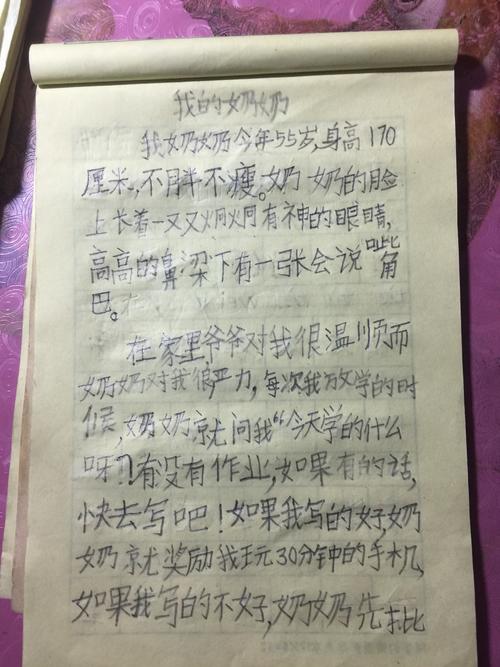 我的奶奶
我奶奶今年55岁,身高170
厘米,不胖不瘦。奶奶的脸
上长着一双炯炯有神的眼睛,
高高的鼻梁下有一张会说嘴
巴。
在家里爷爷对我很温顺而
奶奶对我很严力,每次我放学的时
候,奶奶就问我“今天学的什么
呀?有没有作业,如果有的话,
快去写吧!如果我写的好,奶奶
奶就奖励我玩30分钟的手机,
如果我写的不好,奶奶先批